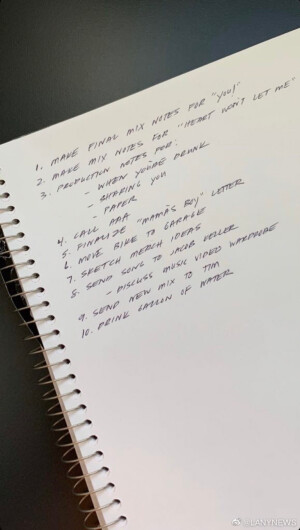 1. MAKE FINAL MIX NOTES FOR "YOU!"
2. MAKE MIX NOTES FOR "HEART WON'T LET ME"
3. PRODUCTION NOTES FOR:
- WHEN YOU'RE DRUNK
- SHARING YOU
- PAPER
4. CALL AAA
5. FINALIZE "MAMA'S BOY" LETTER
6. MOVE BIKE TO GARAGE
7. SKETCH MERCH IDEAS
8. SEND SONG TO JACOB
- DISCUSS MUSIC VIDEO WARDROBE
9. SEND NEW MIX TO TIM
10. DRINK GALLON OF WATER
@LANYNEWS